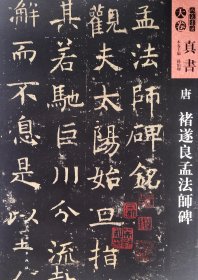 大卷
真書
唐 褚遂良孟法師碑
孟法師碑銘
觀夫太陽始旦指
其若馳巨川分流
而不息是以